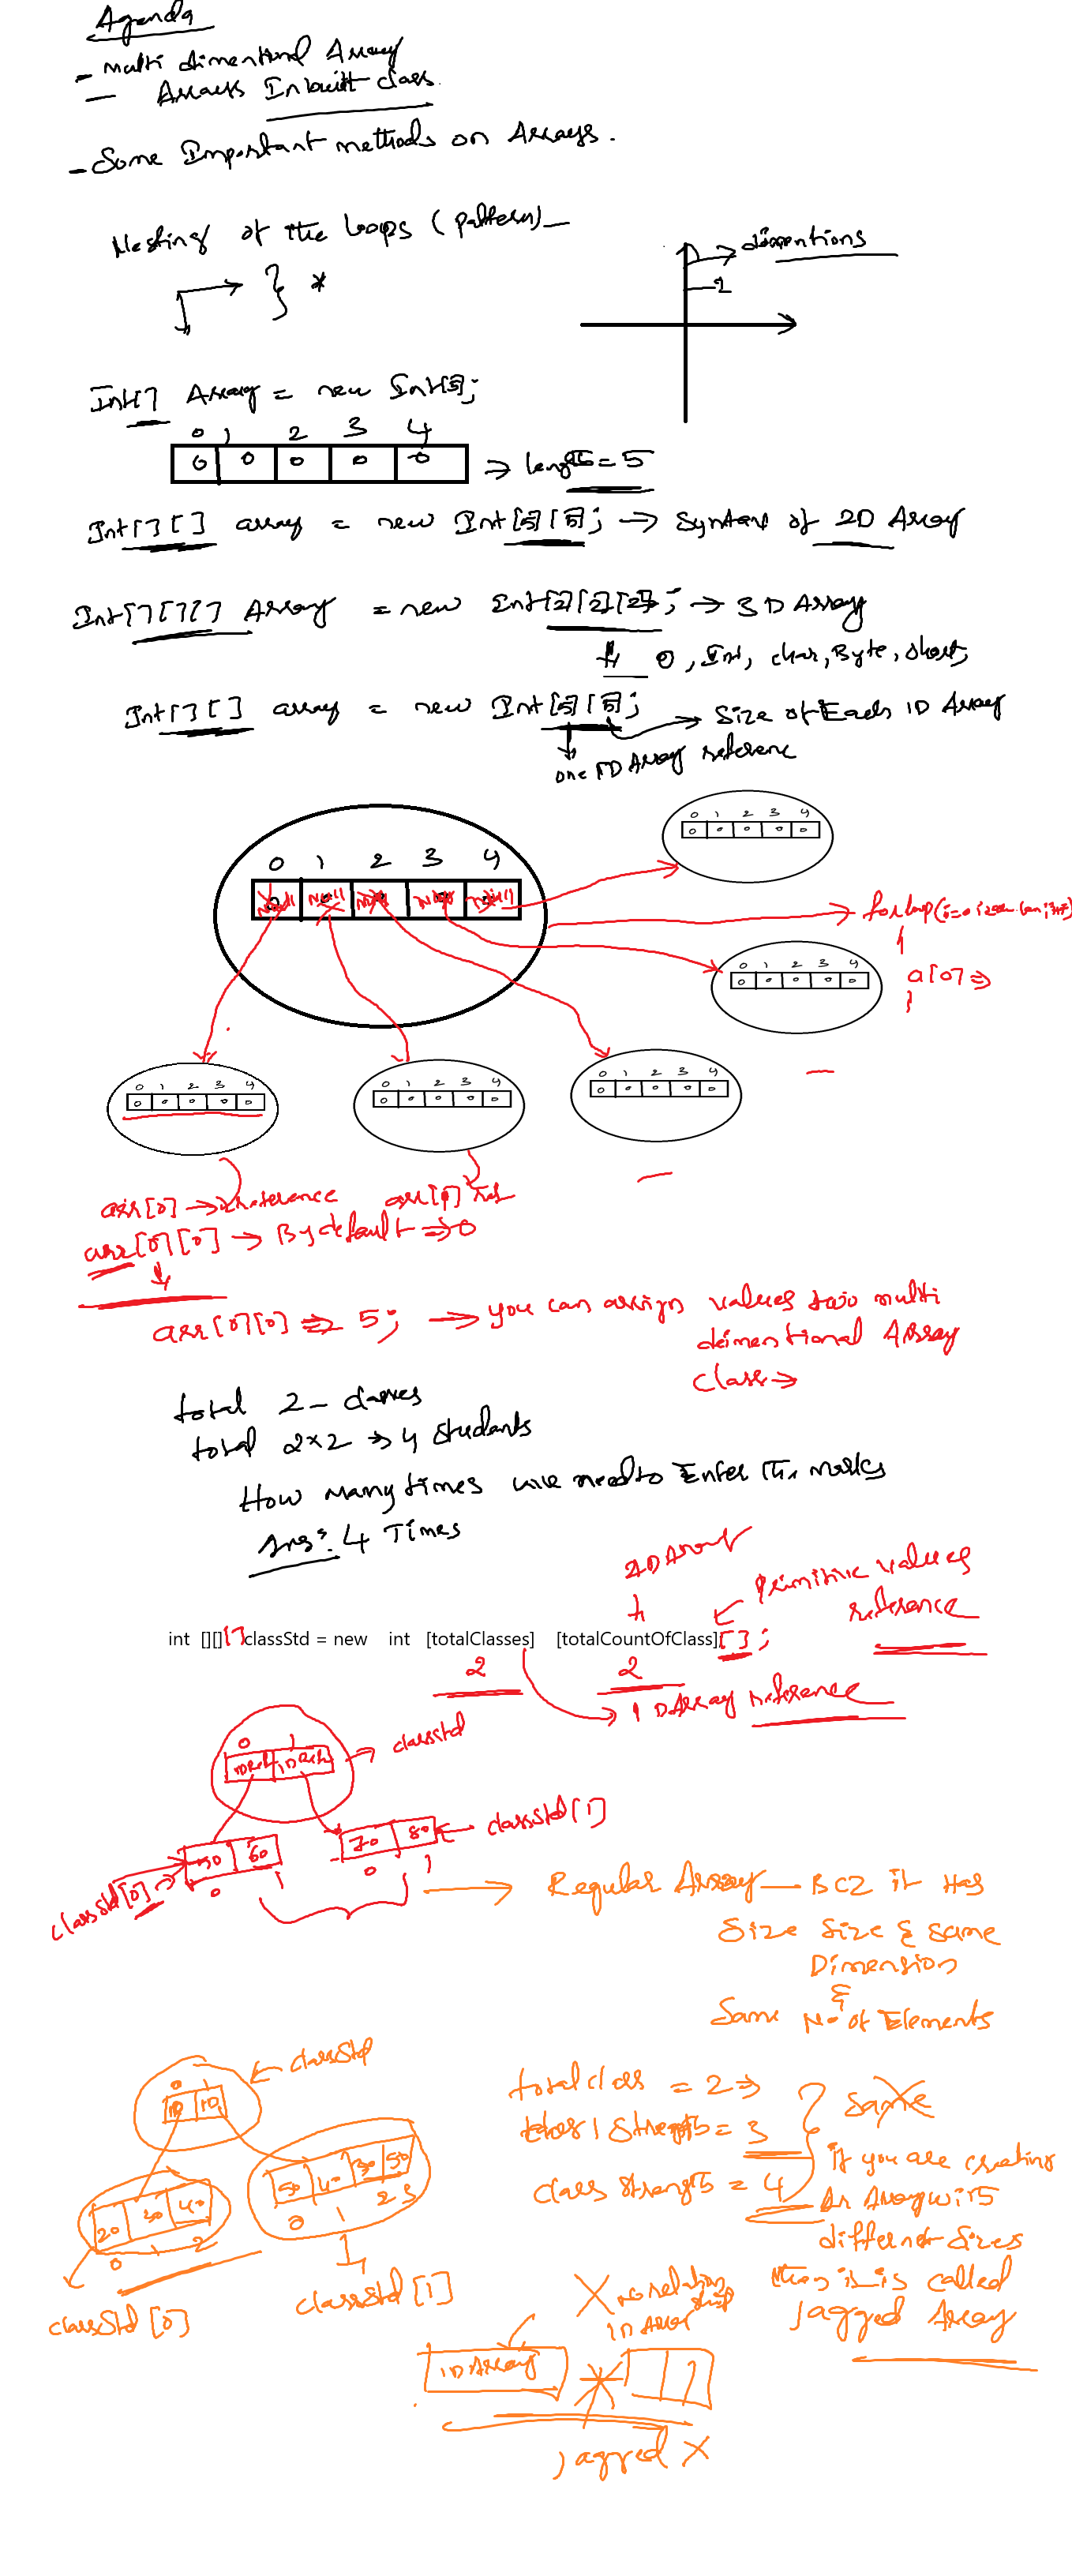 Agenda
- Multi dimentional Array
- Arrays Inbuilt class.
- Some Important methods on Arrays.
Nesting of the loops (pattern)
} *
dimentions
2
Int[] Array = new Int[5];
0 1 2 3 4
0 0 0 0 0 → length = 5
Int[][] array = new Int[5][5]; → Syntax of 2D Array
Int[][][] Array = new Int[2][2][2]; → 3D Array
0, Int, char, Byte, short,
Int[][] array = new Int[5][5];
→ Size of Each 1D Array
one 1D Array reference
0 1 2 3 4
0 0 0 0 0
0 1 2 3 4
null null null null null
for loop (i=0 i
{
0 1 2 3 4
0 0 0 0 0
a[0] ⇒
}
0 1 2 3 4
0 0 0 0 0
0 1 2 3 4
0 0 0 0 0
0 1 2 3 4
0 0 0 0 0
arr[0] → reference
arr[1] ref
arr[0][0] → By default ⇒ 0
arr[0][0] = 5; → you can assign values two multi
deimentional Array
class →
total 2 - classes
total 2*2 → 4 students
How many times we need to Enter the marks
Ans: 4 Times
2D Array
Primitive values
reference
int [][][]classStd = new int [totalClasses] [totalCountOfClass][];
2 2
1 D Array reference
0 1
1D Ref 1D Ref
→ classStd
50 60
0 1
70 80
0 1
classStd[1]
classStd[0]
→ Regular Array — BCZ it Has
Size Size & same
Dimension
&
Same No of Elements
classStd
0 1
1D 1D
20 30 40
0 1 2
50 40 30 50
0 1 2 3
classStd[0]
classStd[1]
total class = 2 ⇒
class 1 Strength = 3
class Strength = 4
same
if you are creating
An Array with
differnet Sizes
then it is called
Jagged Array
X No relation ship
in Array
1D Array
Jagged X